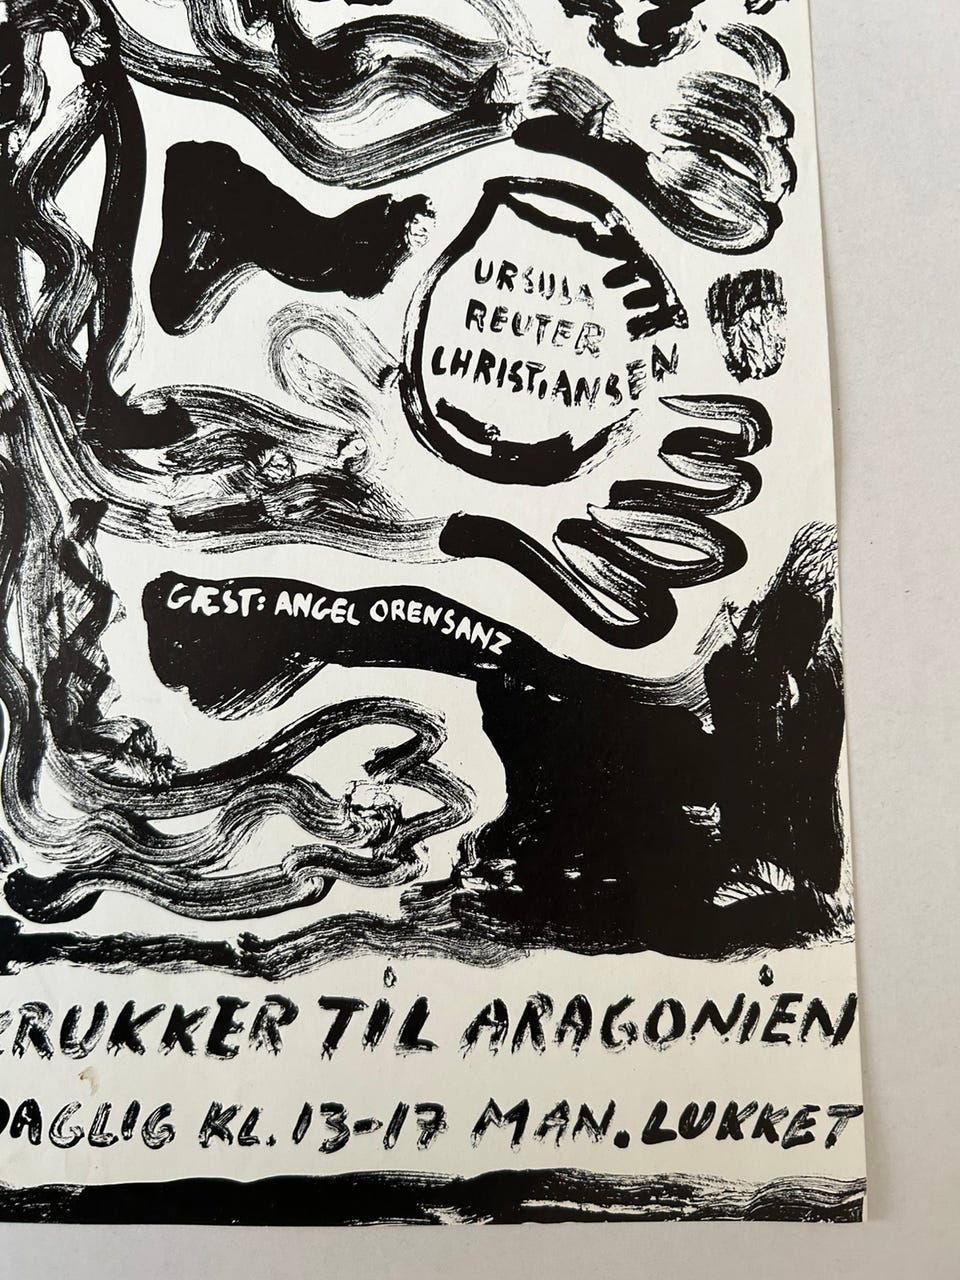 URSULA
REUTER
CHRISTIANSEN
GÆST: ANGEL ORENSANZ
KRUKKER TIL ARAGONIEN
DAGLIG KL. 13-17 MAN. LUKKET